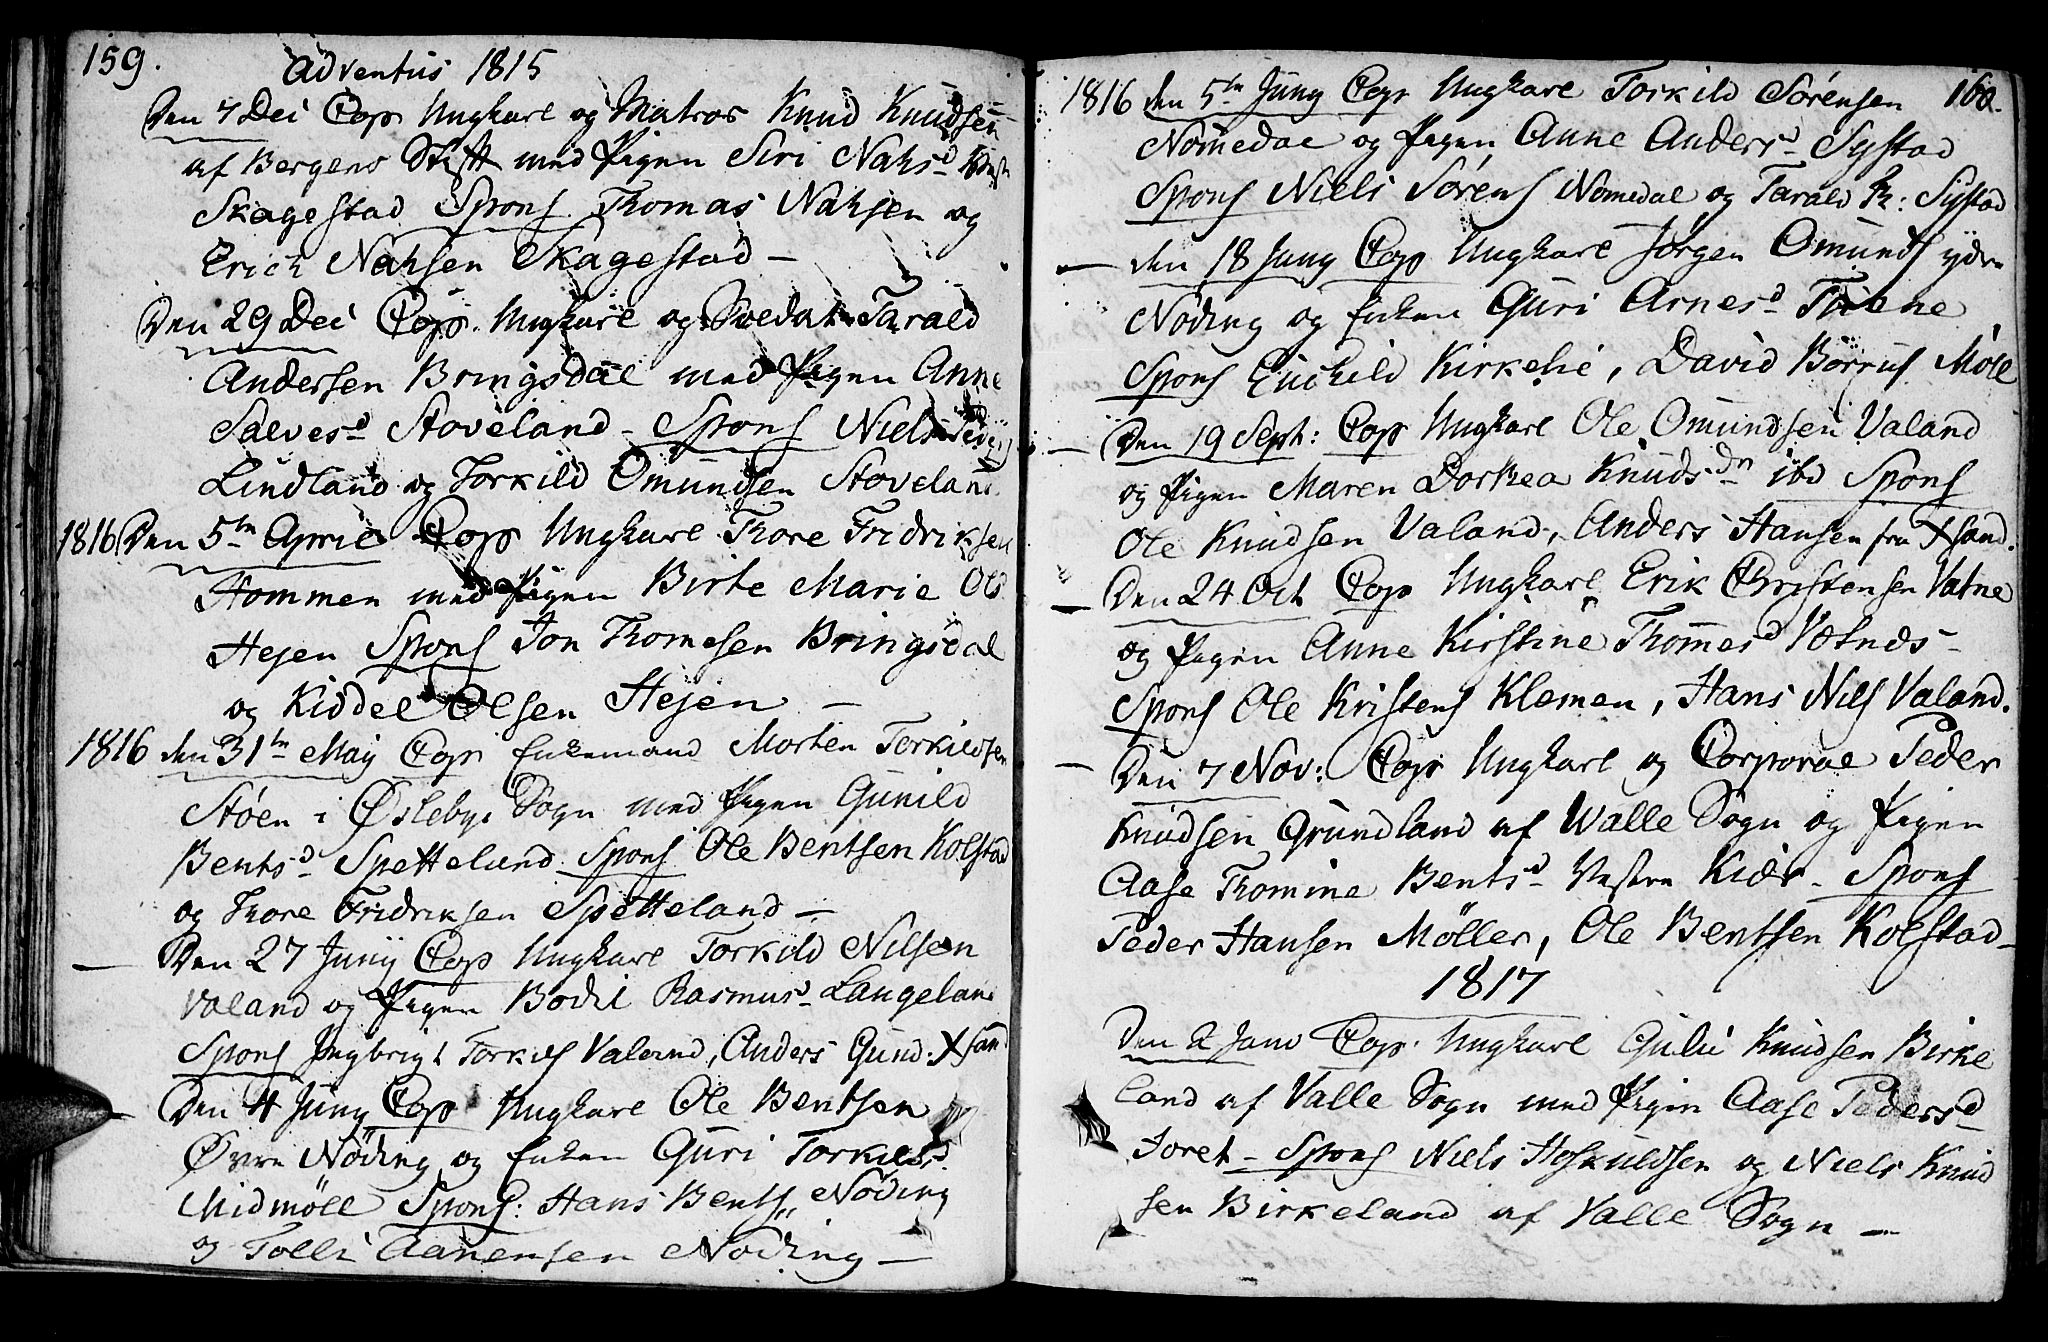 159.
Adventus 1815
Den 7 Dei Cop Ungkarl og Matros Knud Knudsen
af Bergens Stift med Pigen Siri Nahsd
Skagestad Spons Thomas Nahsen og
Erich Nahsen Skagestad –
Den 29 Dei Cop. Ungkarl og Soldat Tarald
Andersen Bringsdal med Pigen Anne
Salvesd Stoveland – Spons Niels
Lindland og Torkild Omundsen Stoveland
1816 Den 5te April Cop Ungkarl Thore Fridriksen
Hommen med Pigen Birte Marie Olsd
Hejen Spons Jon Thomesen Bringsdal
og Kiddel Olsen Hejen –
1816 den 31te May Cop Enkemand Morten Torkildsen
Stöen i Øslebye Sogn med Pigen Gunild
Bentsd Spetteland Spons Ole Bentsen Kolstad
og Thore Fridriksen Spetteland –
– Den 27 Juny Cop Ungkarl Torkild Nilsen
Valand og Pigen Bodil Rasmusd Langeland
Spons Ingbrigt Torkils Valand, Anders Gund. Xsan
– Den 4 July Cop Ungkarl Ole Bentsen
Øvre Nöding og Enken Guri Torkilsd
Midmöll Spons: Hans Bents Nöding
og Tolli Aanensen Nöding –
1816 den 5te July Cop Ungkarl Torkild Sörensen 160.
Nomedal og Pigen Anne Andersd Systad
Spons Niels Sörens Nomedal og Tarald K: Systad
– den 18 July Cop Ungkarl Jörgen Omunds ydre
Nöding og Enken Guri Arnesd Tvene
Spons Euchild Kirkelie, David Börrus Möll
– Den 19 Sept: Cop Ungkarl Ole Omundsen Valand
og Pigen Maren Dorthea Knudsdn ibd Spons
Ole Knudsen Valand, Anders Hansen fra Xsand.
– Den 24 Oct Cop Ungkarl Erik Christensen Vatne
og Pigen Anne Kirstine Thomesd Vatnes –
Spons Ole Kristens Klemen, Hans Nils Valand.
– Den 7 Nov: Cop Ungkarl og Corporal Peder
Knudsen Grundland af Walle Sogn og Pigen
Aase Thomine Bentsd Vestre Kier – Spons
Peder Hansen Möller, Ole Bentsen Kolstad –
1817
Den 2 Janv Cop. Ungkarl Gulli Knudsen Birke
land af Valle Sogn med Pigen Aase Pedersd
Foret – Spons Niels Hoskuldsen og Niels Knud
sen Birkeland af Valle Sogn –